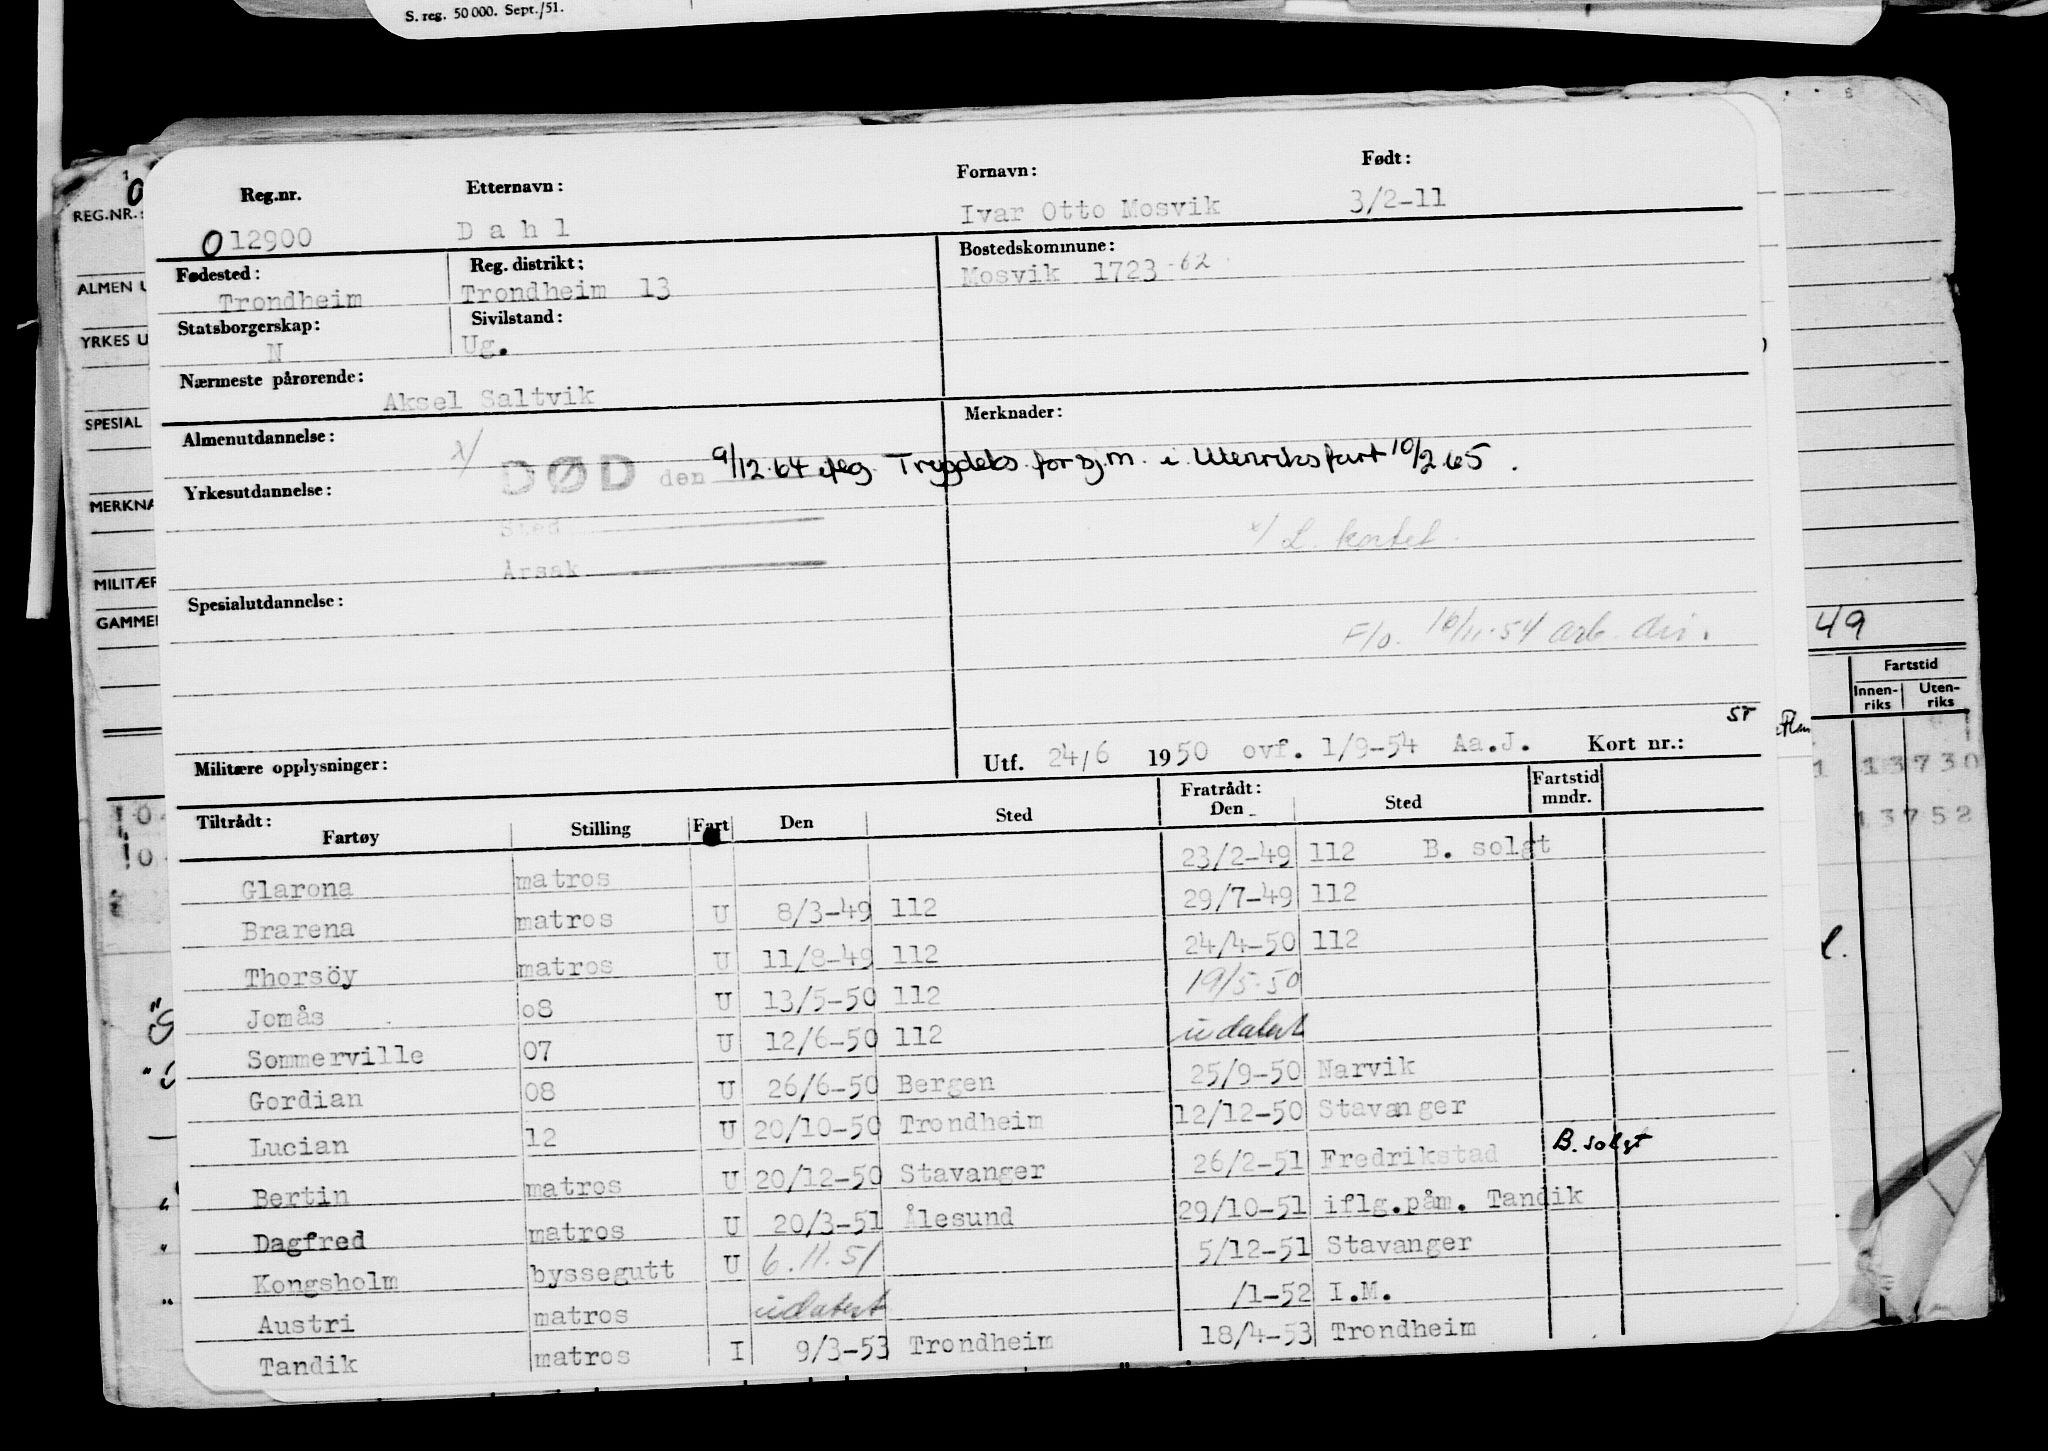 S. reg. 50 000. Sept./51.
Reg.nr. Etternavn: Fornavn: Født:
012900 Dahl Ivar Otto Mosvik 3/2-11
Fødested: Reg. distrikt: Bostedskommune:
Trondheim Trondheim 13 Mosvik 1723-62
Statsborgerskap: Sivilstand:
N Ug.
Nærmeste pårørende:
Aksel Saltvik
Almenutdannelse: Merknader:
x/ DØD den 9/12.64 iflg. Trygdeks. for sj.m. i Utenriksfart 10/2.65.
Yrkesutdannelse:
Sted
x/ L. kortet.
Årsak
Spesialutdannelse:
F/o. 16/11-54 arb. dir.
Militære opplysninger: Utf. 24/6 1950 ovf. 1/9-54 Aa.J. Kort nr.:
ST
Tiltrådt: Fartøy Stilling Fart Den Sted Fratrådt: Den Sted Fartstid mndr.
Glarona matros 23/2-49 112 B. solgt
Brarena matros U 8/3-49 112 29/7-49 112
Thorsöy matros U 11/8-49 112 24/4-50 112
Jomås 08 U 13/5-50 112 19/5-50
Sommerville 07 U 12/6-50 112 udatert
Gordian 08 U 26/6-50 Bergen 25/9-50 Narvik
Lucian 12 U 20/10-50 Trondheim 12/12-50 Stavanger
Bertin matros U 20/12-50 Stavanger 26/2-51 Fredrikstad B. solgt
Dagfred matros U 20/3-51 Ålesund 29/10-51 iflg.påm. Tandik
Kongsholm byssegutt U 6.11.51 5/12-51 Stavanger
Austri matros udatert /1-52 I.M.
Tandik matros I 9/3-53 Trondheim 18/4-53 Trondheim
REG.NR.:
ALMEN U
YRKES U
SPESIAL
MERKNA
MILITÆR
GAMMEL
49
Fartstid
Innenriks Utenriks
13730
13752